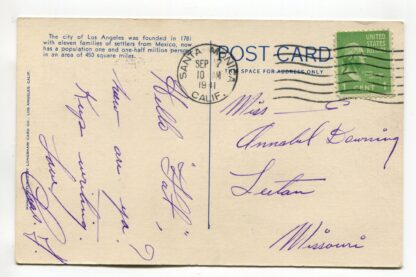 The city of Los Angeles was founded in 1781
with eleven families of settlers from Mexico, now
has a population one and one-half million persons
in an area of 450 square miles.
POST CARD
THIS SPACE FOR ADDRESS ONLY
SANTA MONICA
SEP
10 AM
1941
CALIF.
CENT
LONGSHAW CARD CO., LOS ANGELES, CALIF.
Hello
how are ya?
Keep writing.
Love,
Miss
Annabel Downing
Missouri